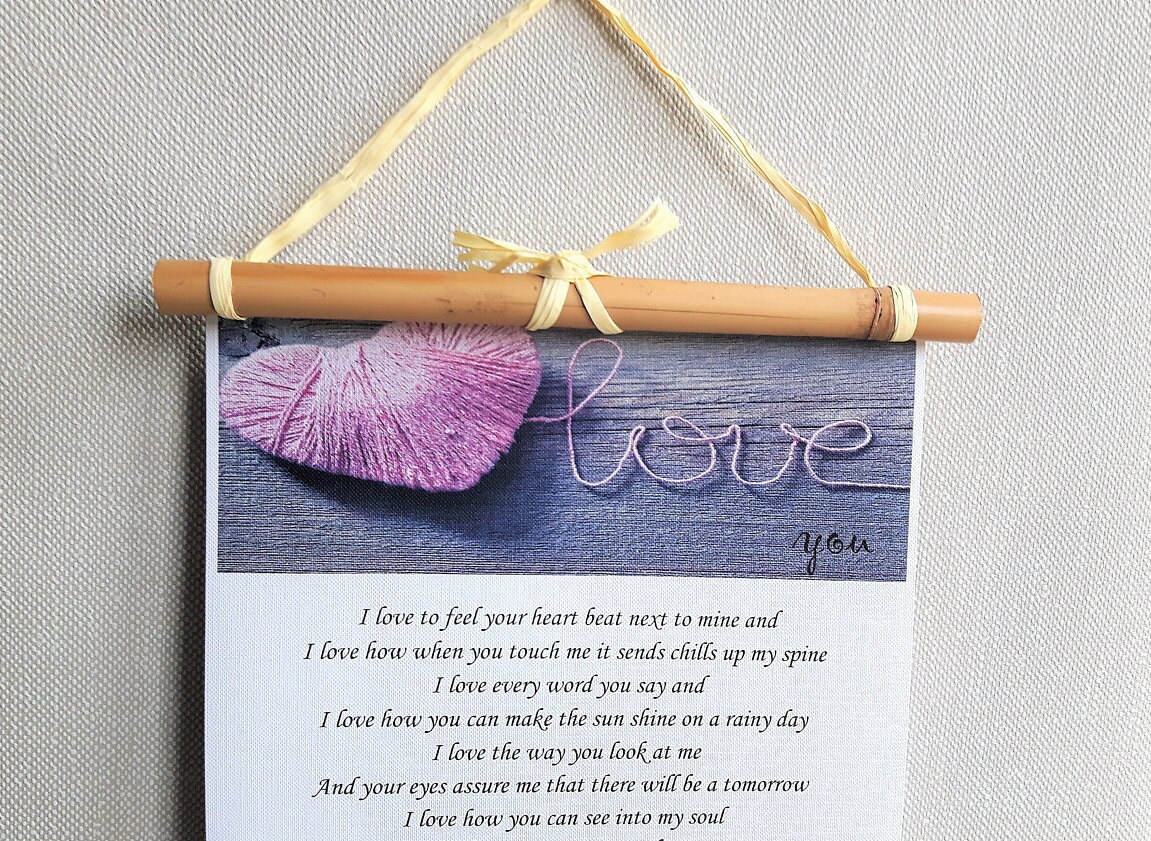 love
you
I love to feel your heart beat next to mine and
I love how when you touch me it sends chills up my spine
I love every word you say and
I love how you can make the sun shine on a rainy day
I love the way you look at me
And your eyes assure me that there will be a tomorrow
I love how you can see into my soul